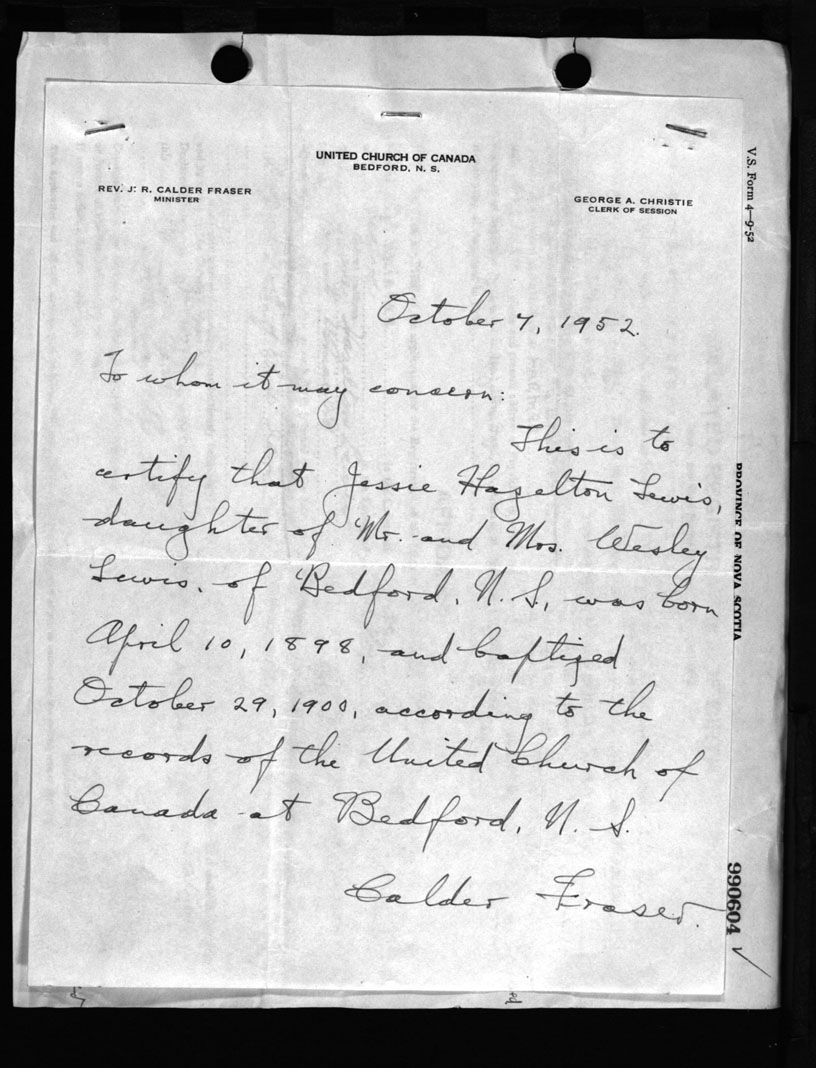 UNITED CHURCH OF CANADA
BEDFORD, N. S.
REV. J. R. CALDER FRASER
MINISTER
GEORGE A. CHRISTIE
CLERK OF SESSION
October 7, 1952.
To whom it may concern:
This is to
certify that Jessie Hazelton Lewis,
daughter of Mr. and Mrs. Wesley
Lewis, of Bedford, N. S, was born
April 10, 1898, and baptized
October 29, 1900, according to the
records of the United Church of
Canada at Bedford, N. S.
Calder Fraser.
V.S. Form 4—9-52
PROVINCE OF NOVA SCOTIA
990604